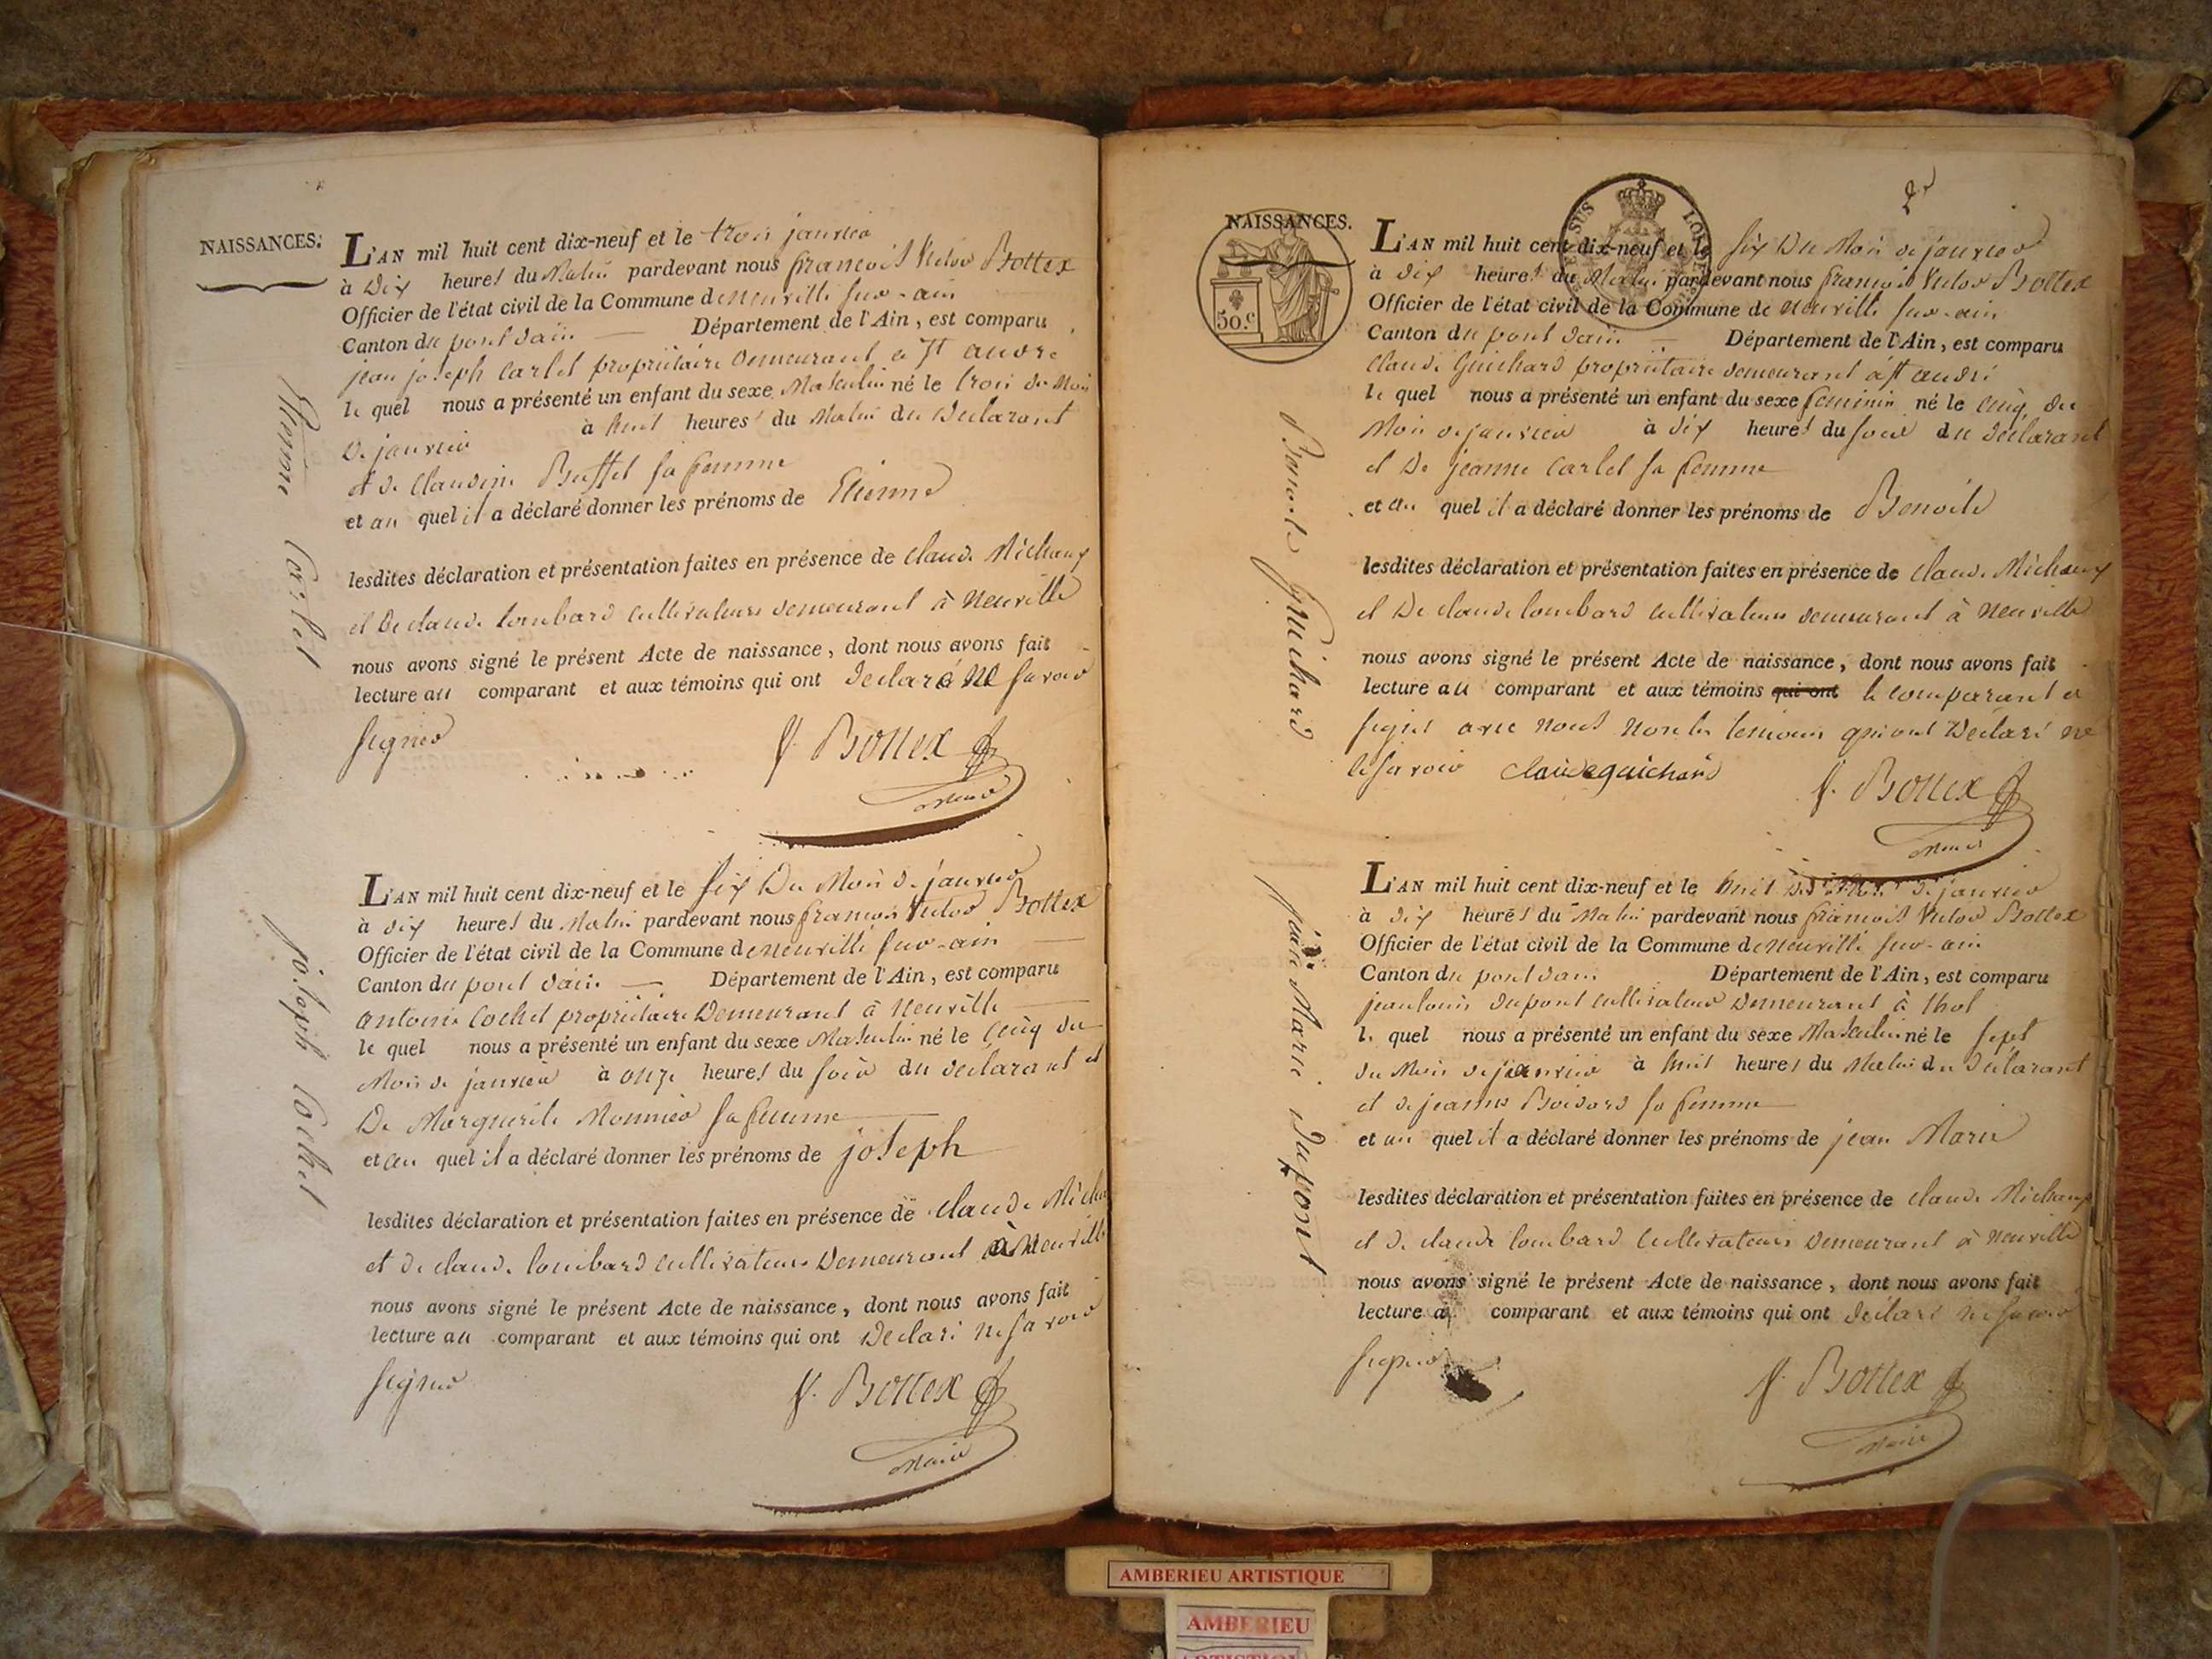 NAISSANCES.
L'AN mil huit cent dix-neuf et le trois janvier
à Dix heures du Matin pardevant nous françois Victor Bottex
Officier de l'état civil de la Commune de neuville sur-ain
Canton du pont dain Département de l'Ain, est comparu
jean joseph Carlet propriétaire Demeurant a St andré
le quel nous a présenté un enfant du sexe Masculin né le trois du Mois
De janvier à huit heures du Matin du Declarant
et de Claudine Buffet sa femme
et au quel il a déclaré donner les prénoms de Etienne
lesdites déclaration et présentation faites en présence de Claude Michaux
et De claude lombard cultivateurs demeurant à Neuville
nous avons signé le présent Acte de naissance, dont nous avons fait
lecture au comparant et aux témoins qui ont Declaré ne savoir
signer
f. Bottex
Maire
Etienne Carlet
L'AN mil huit cent dix-neuf et le six Du Mois de janvier
à dix heures du Matin pardevant nous françois Victor Bottex
Officier de l'état civil de la Commune de neuville sur-ain
Canton du pont dain Département de l'Ain, est comparu
antoine Cochet propriétaire Demeurant à Neuville
le quel nous a présenté un enfant du sexe Masculin né le Cinq du
Mois de janvier à onze heures du soir du déclarant et
De Marguerite Monnier sa femme
et au quel il a déclaré donner les prénoms de joseph
lesdites déclaration et présentation faites en présence de claude
et de claude lombard cultivateurs Demeurant à Neuville
nous avons signé le présent Acte de naissance, dont nous avons fait
lecture au comparant et aux témoins qui ont Declaré ne savoir
signer
f. Bottex
Maire
joseph Cochet
NAISSANCES.
50.c
L'AN mil huit cent dix-neuf et le six Du Mois de janvier
à dix heures du Matin pardevant nous françois Victor Bottex
Officier de l'état civil de la Commune de neuville sur-ain
Canton du pont dain Département de l'Ain, est comparu
Claude Guichard propriétaire demeurant à st andré
le quel nous a présenté un enfant du sexe feminin né le cinq du
Mois de janvier à dix heures du soir du déclarant
et De jeanne Carlet sa femme
et au quel il a déclaré donner les prénoms de Benoite
lesdites déclaration et présentation faites en présence de Claude Michaux
et De claude lombard cultivateurs demeurant à Neuville
nous avons signé le présent Acte de naissance, dont nous avons fait
lecture au comparant et aux témoins qui ont le comparant a
signé avec nous non les temoins qui ont Declaré ne
le savoir claude guichard
f. Bottex
Maire
Benoite Guichard
L'AN mil huit cent dix-neuf et le huit du Mois de janvier
à dix heures du Matin pardevant nous françois Victor Bottex
Officier de l'état civil de la Commune de neuville sur-ain
Canton du pont dain Département de l'Ain, est comparu
jean louis dupont cultivateur Demeurant à thol
le quel nous a présenté un enfant du sexe Masculin né le sept
du Mois de janvier à huit heures du Matin du déclarant
et de jeanne sa femme
et au quel il a déclaré donner les prénoms de jean Marie
lesdites déclaration et présentation faites en présence de claude Michaux
et de claude lombard Cultivateurs Demeurant à Neuville
nous avons signé le présent Acte de naissance, dont nous avons fait
lecture au comparant et aux témoins qui ont déclaré ne savoir
signer
f. Bottex
Maire
jean Marie Dupont
AMBERIEU ARTISTIQUE
AMBERIEU
ARTISTIQUE